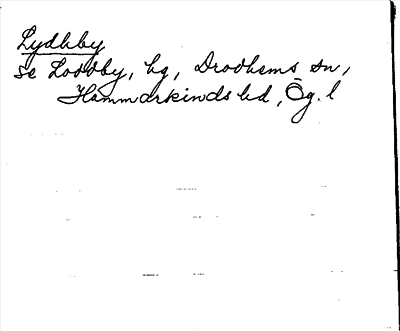 Lydhby
se Loddby, hg, Drothems sn,
Hammarkinds hd, Ög. l